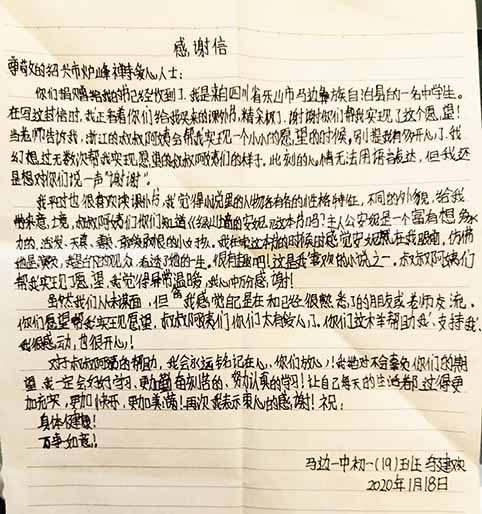 感谢信
尊敬的绍兴市炉峰禅寺爱心人士：
你们捐赠给我的书已经收到了，我是来自四川省乐山市马边彝族自治县的一名中学生。
在写这封信时，我正看着你们给我买来的课外书，精彩极了，谢谢你们帮我实现了这个愿望！
当老师告诉我，浙江的叔叔阿姨会帮我实现一个小小的愿望的时候，别提我有多开心了，我
幻想过无数次帮我实现愿望的叔叔阿姨们的样子。此刻的心情无法用语言表达，但我还
是想对你们说一声“谢谢”。
我平时也很喜欢读课外书，我觉得小说里的人物各有各的性格特征，不同的外貌，给我
带来意境，叔叔阿姨们你们知道《绿山墙的安妮》这本书吗？主人公安妮是一个富有想象
力的，活发、天真、的小女孩。我在读这本书的时候时感觉安妮就在我眼前，仿佛
她是演员，我是台下的观众，看透了她的一生。很有趣吧！这是我喜欢的小说之一。叔叔阿姨们
帮我实现了愿望，我觉得异常温暖，我心中万分感谢！
虽然我们从未谋面，但我感觉自己是在和已经很熟悉了的朋友或老师交流。
你们愿望帮我实现愿望，叔叔阿姨们你们太有爱心了。你们这样帮助我、支持我，
我很感动，也很开心！
对于叔叔阿姨的帮助，我会永远铭记在心，你们放心！我绝对不会辜负你们的期
望，我一定会好好学习，更加刻苦的、努力认真的学习！让自己每天的生活都过得更
加充实，更加快乐，更加美满！再次我表示衷心的感谢！祝：
身体健康！
万事如意！
马边一中初一(19)班 建欢
2020年1月18日